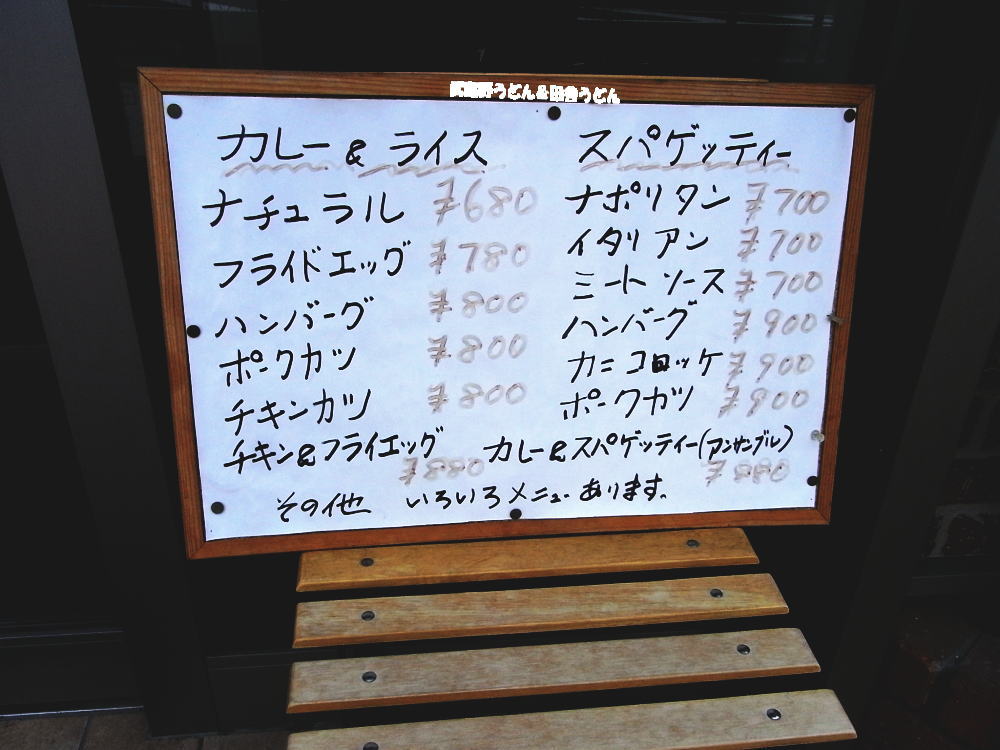 うどん&田舎うどん
カレー & ライス
ナチュラル ¥680
フライドエッグ ¥780
ハンバーグ ¥800
ポークカツ ¥800
チキンカツ ¥800
チキン&フライエッグ ¥880
スパゲッティー
ナポリタン ¥700
イタリアン ¥700
ミートソース ¥700
ハンバーグ ¥900
カニコロッケ ¥900
ポークカツ ¥900
カレー&スパゲッティー(アンサンブル) ¥880
その他 いろいろメニューあります.